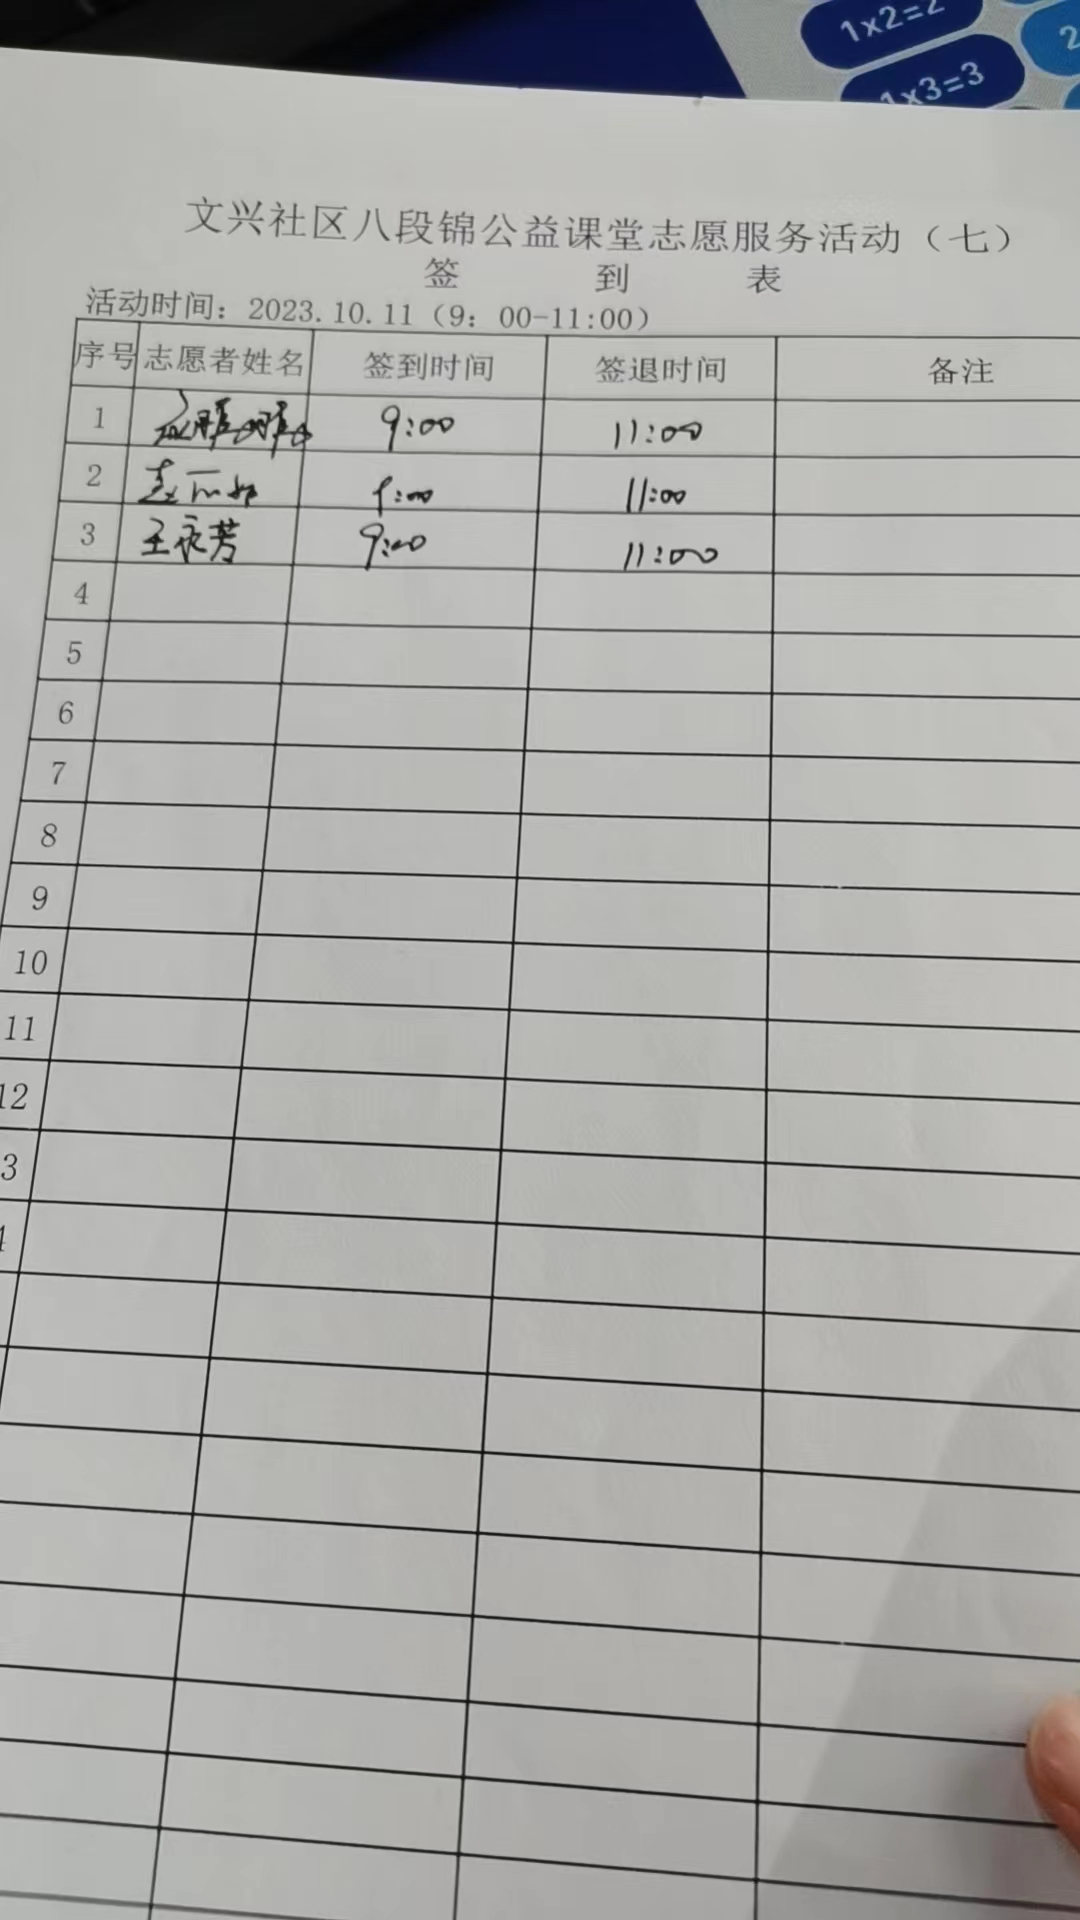 1x2=2
2
1x3=3
文兴社区八段锦公益课堂志愿服务活动（七）
签 到 表
活动时间：2023.10.11（9：00-11:00）
序号 志愿者姓名 签到时间 签退时间 备注
1 9:00 11:00
2 9:00 11:00
3 王永芳 9:00 11:00
4
5
6
7
8
9
10
11
12
3
4